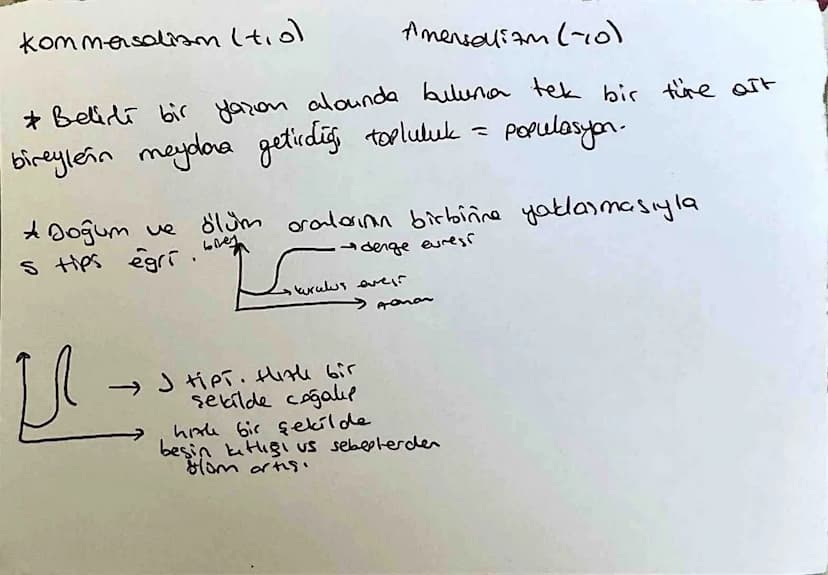 Kommensalizm (+,0) Amensalizm (-,0)
* Belirli bir yaşam alanında bulunan tek bir türe ait
bireylerin meydana getirdiği topluluk = populasyon.
* Doğum ve ölüm oranlarının birbirine yaklaşmasıyla
S tips eğri.
birey
→ denge evresi
→ kuruluş evresi
zaman
→ J tipi. Hızlı bir
şekilde çoğalıp
hızlı bir şekilde
besin kıtlığı vs sebeplerden
ölüm artış.